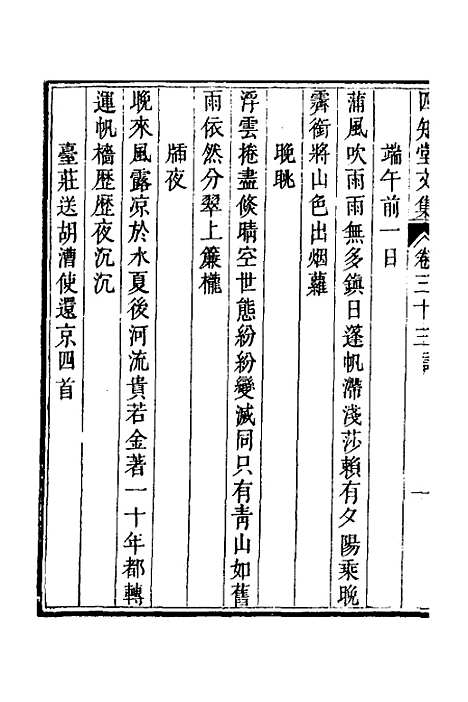 四知堂文集 卷三十三 一
端午前一日
蒲風吹雨雨無多鎮日蓬帆滯淺莎賴有夕陽乘晚
霽銜將山色出烟蘿
晚眺
浮雲捲盡倐晴空世態紛紛變滅同只有靑山如舊
雨依然分翠上簾櫳
牐夜
晚來風露凉於水夏後河流貴若金著一十年都轉
運帆檣歷歷夜沉沉
臺莊送胡漕使還京四首